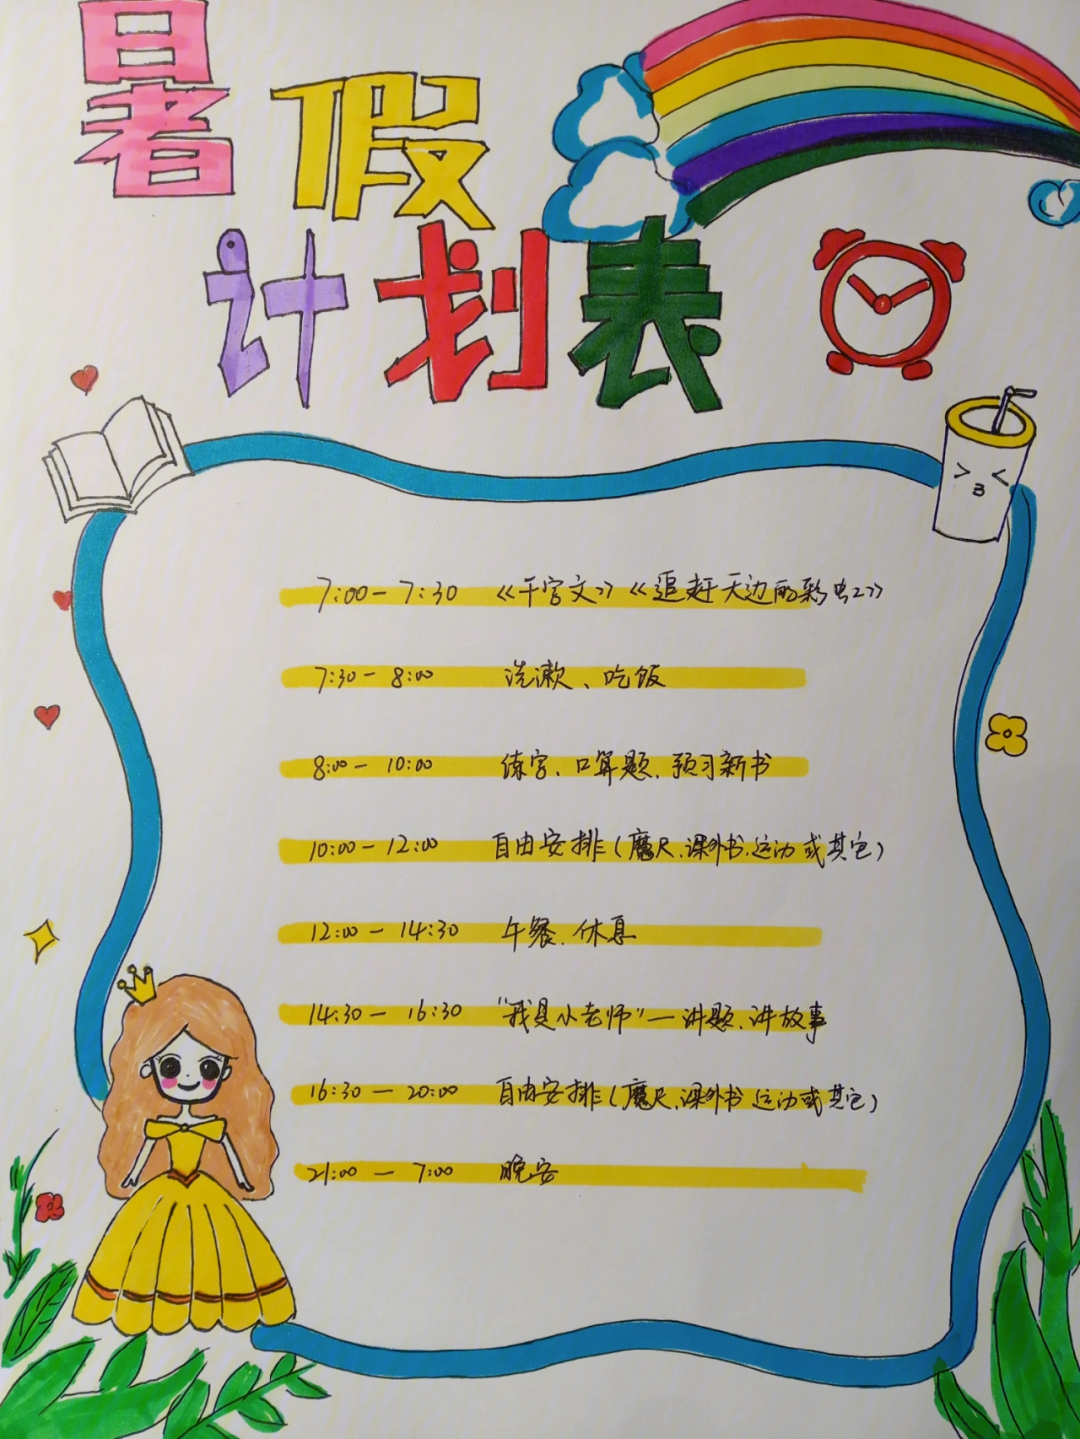 暑假
计划表
7:00 — 7:30 《千字文》《追赶天边的彩虹2》
7:30 — 8:00 洗漱、吃饭
8:00 — 10:00 练字、口算题、预习新书
10:00 — 12:00 自由安排(魔尺、课外书、运动或其它)
12:00 — 14:30 午餐、休息
14:30 — 16:30 "我是小老师"—讲题、讲故事
16:30 — 20:00 自由安排(魔尺、课外书 运动或其它)
21:00 — 7:00 晚安